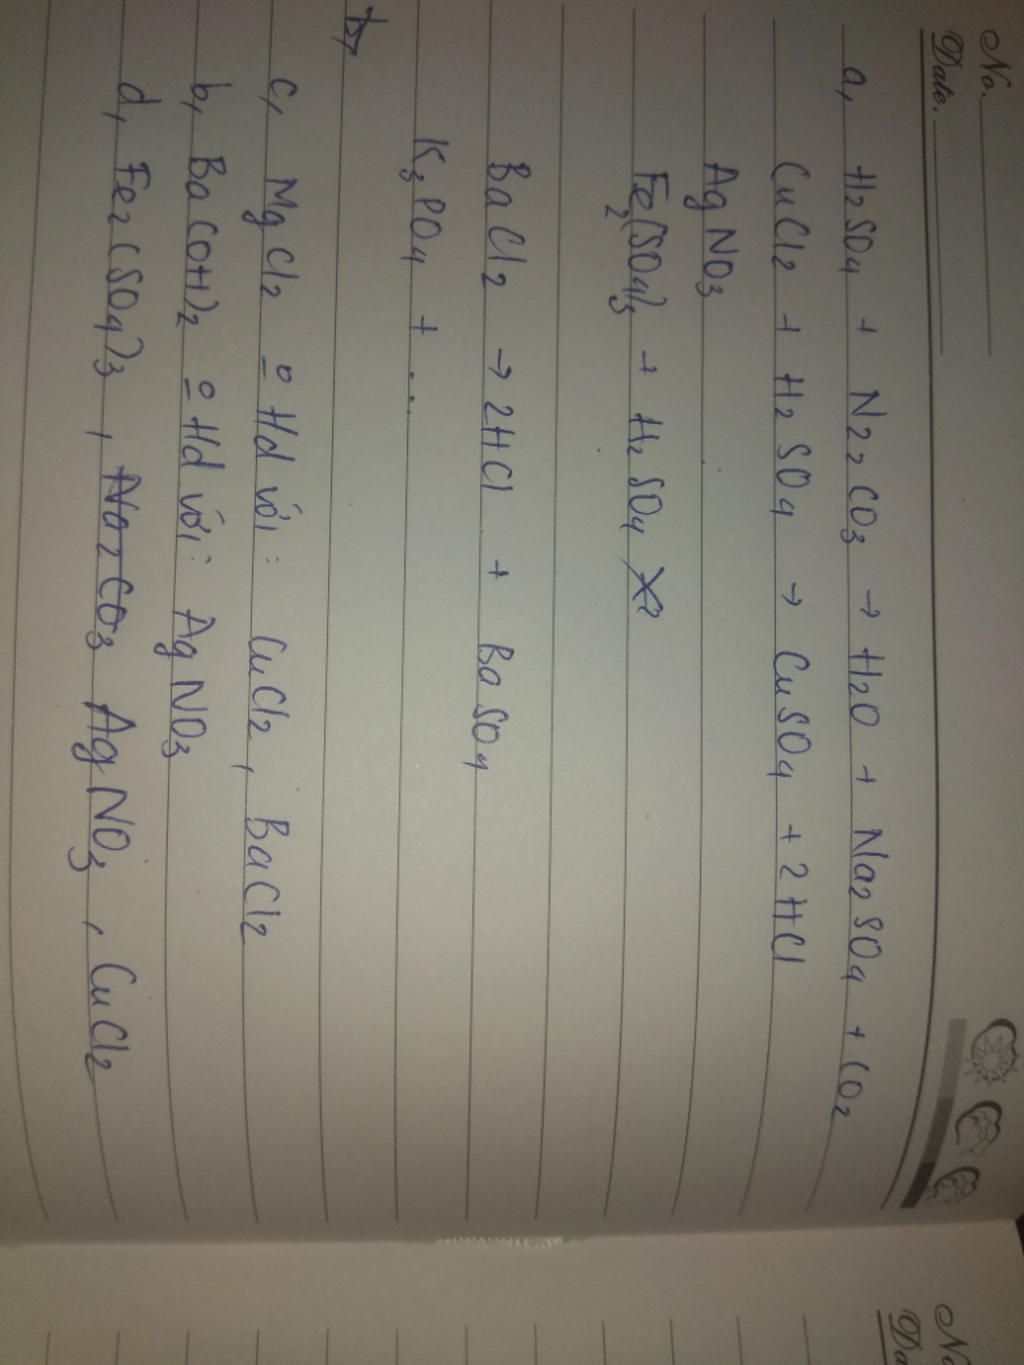 No.
Date.
a, H2SO4 + N22CO3 → H2O + Na2SO4 + CO2
CuCl2 + H2SO4 → CuSO4 + 2HCl
AgNO3
Fe2(SO4)3 + H2SO4
BaCl2 → 2HCl + BaSO4
K3PO4 + ...
b,
c, MgCl2 o Hd với: CuCl2, BaCl2
b, Ba(OH)2 o Hd với: AgNO3
d, Fe2(SO4)3, Na2CO3 AgNO3, CuCl2
No
Da